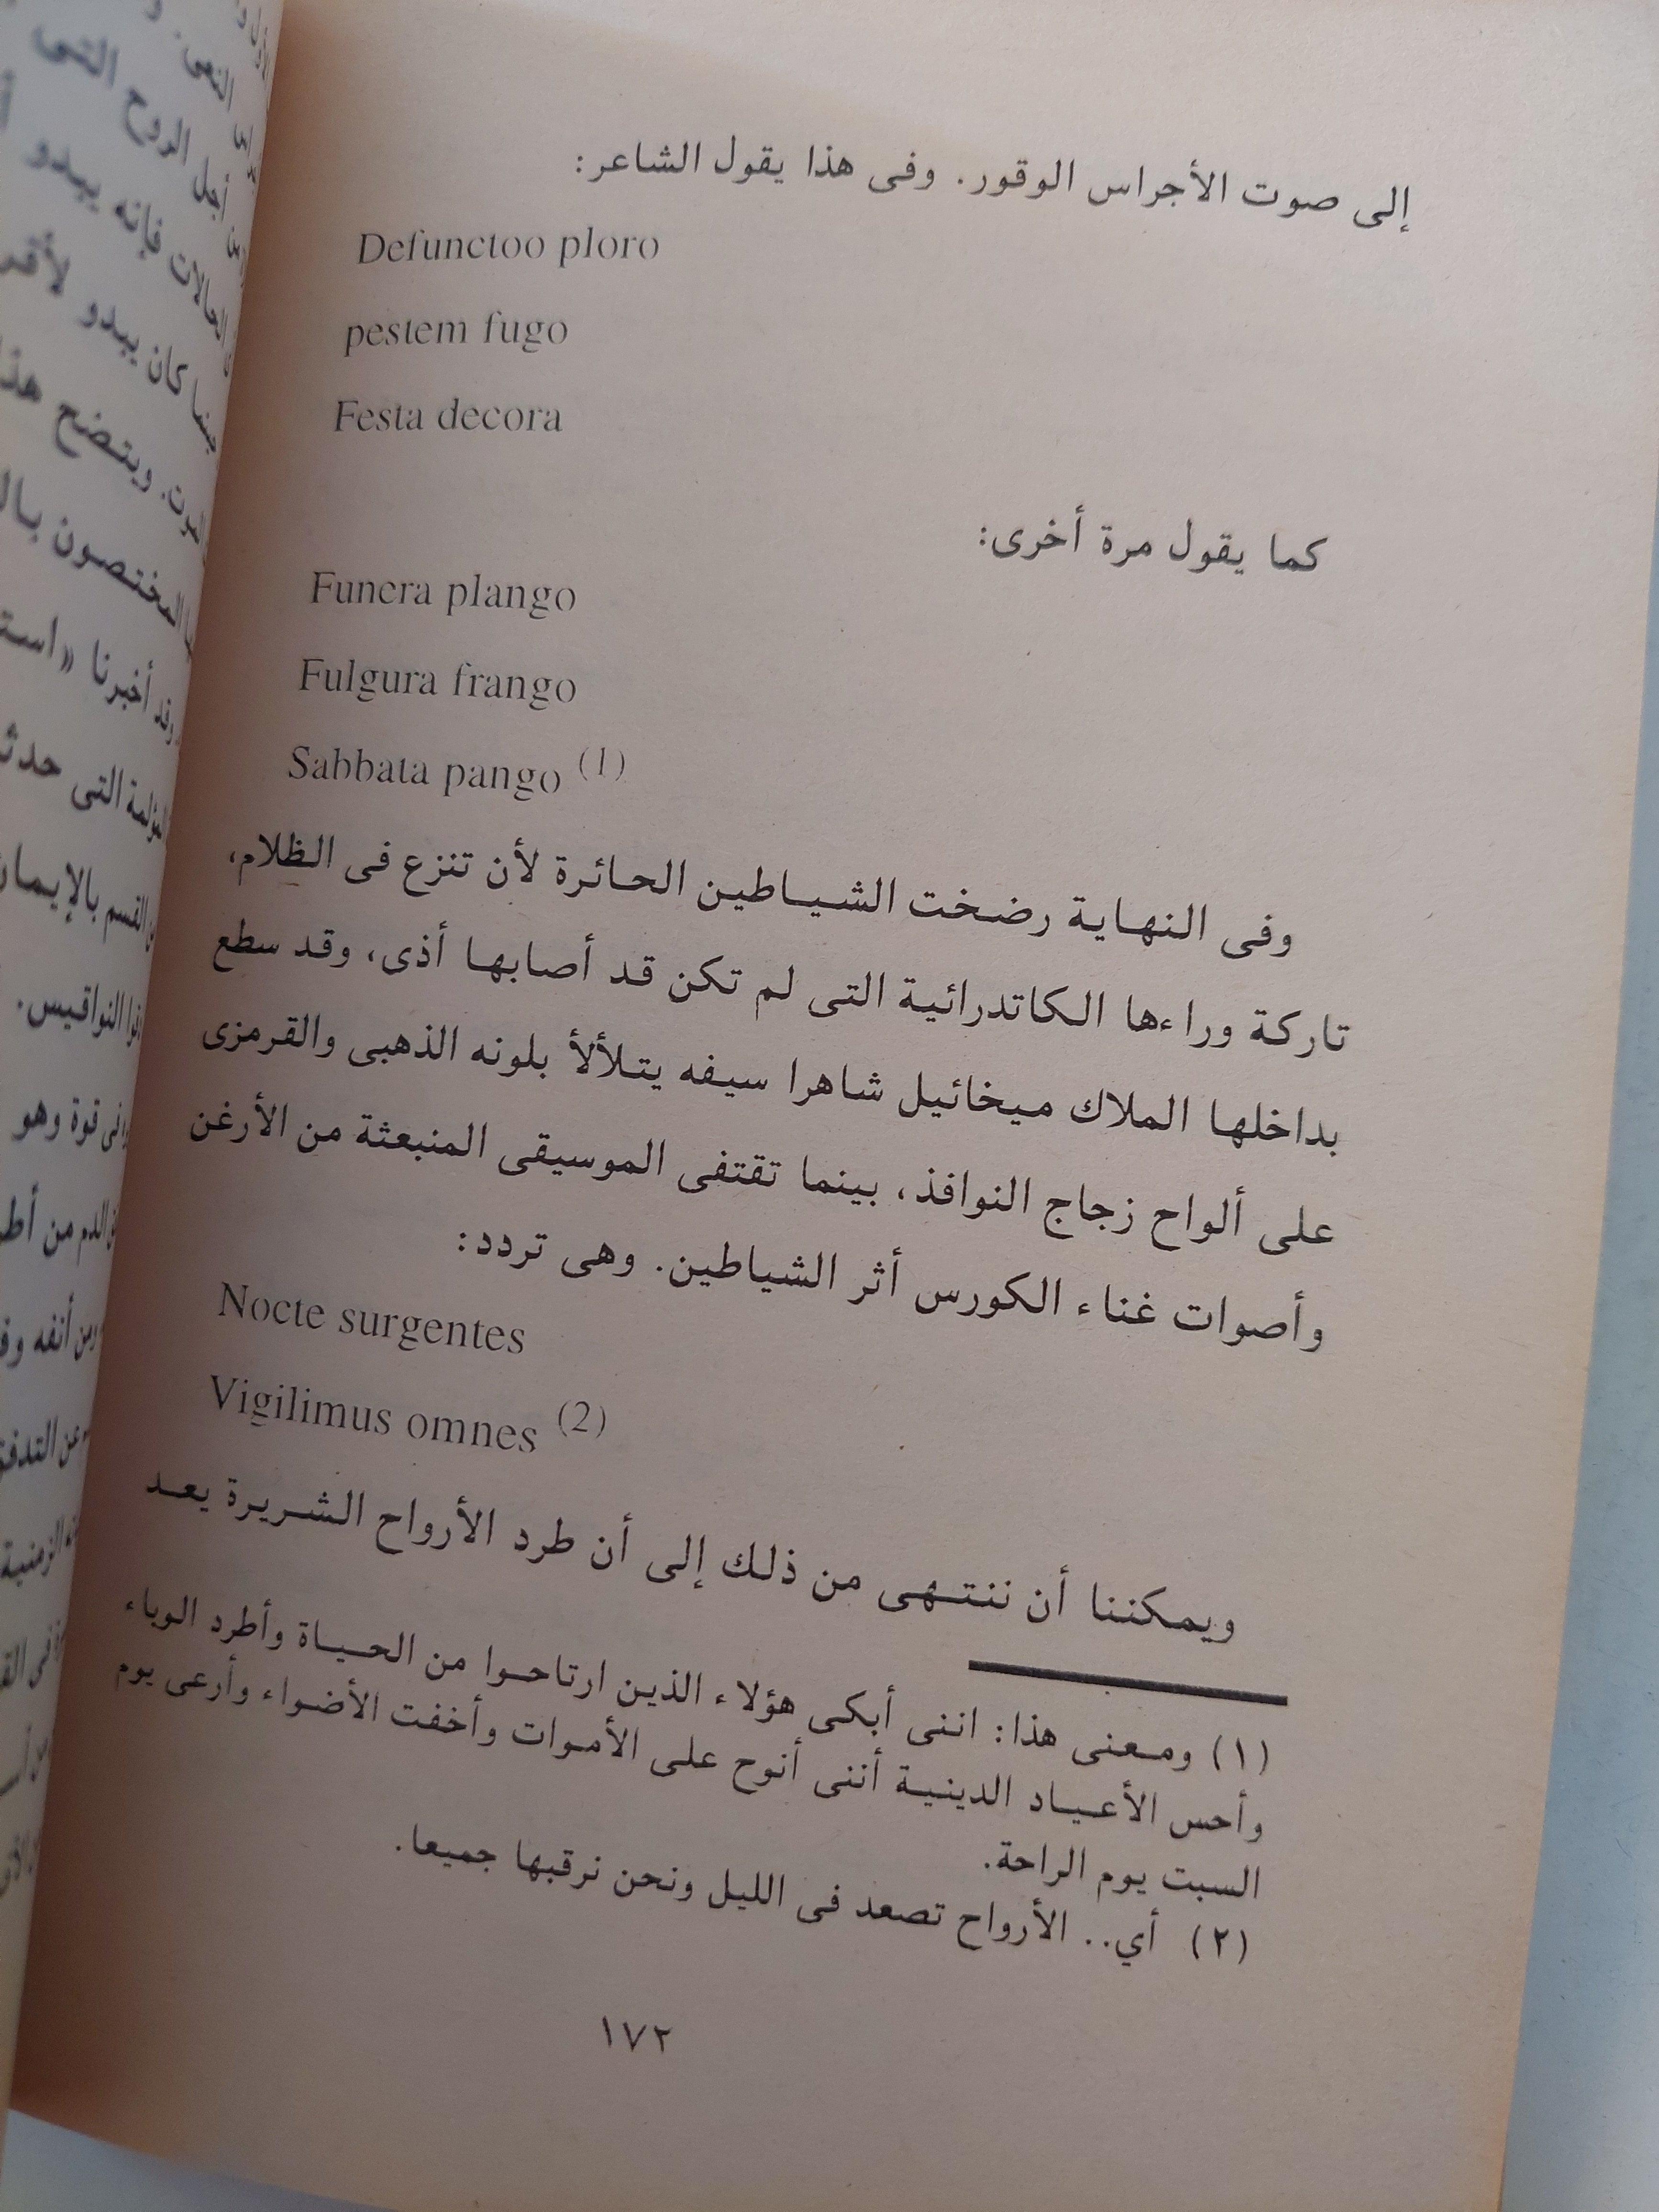 إلى صوت الأجراس الوقور. وفى هذا يقول الشاعر:
Defunctoo ploro
pestem fugo
Festa decora
كما يقول مرة أخرى:
Funera plango
Fulgura frango
Sabbata pango (1)
وفى النهاية رضخت الشياطين الحائرة لأن تنزع فى الظلام،
تاركة وراءها الكاتدرائية التى لم تكن قد أصابها أذى، وقد سطع
بداخلها الملاك ميخائيل شاهرا سيفه يتلألأ بلونه الذهبى والقرمزى
على ألواح زجاج النوافذ، بينما تقتفى الموسيقى المنبعثة من الأرغن
وأصوات غناء الكورس أثر الشياطين. وهى تردد:
Nocte surgentes
Vigilimus omnes (2)
ويمكننا أن ننتهى من ذلك إلى أن طرد الأرواح الشريرة يعد
(١) ومعنى هذا: اننى أبكى هؤلاء الذين ارتاحوا من الحياة وأطرد الوباء
وأحس الأعياد الدينية أننى أنوح على الأموات وأخفت الأضواء وأرعى يوم
السبت يوم الراحة.
(٢) أي.. الأرواح تصعد فى الليل ونحن نرقبها جميعا.
١٧٢